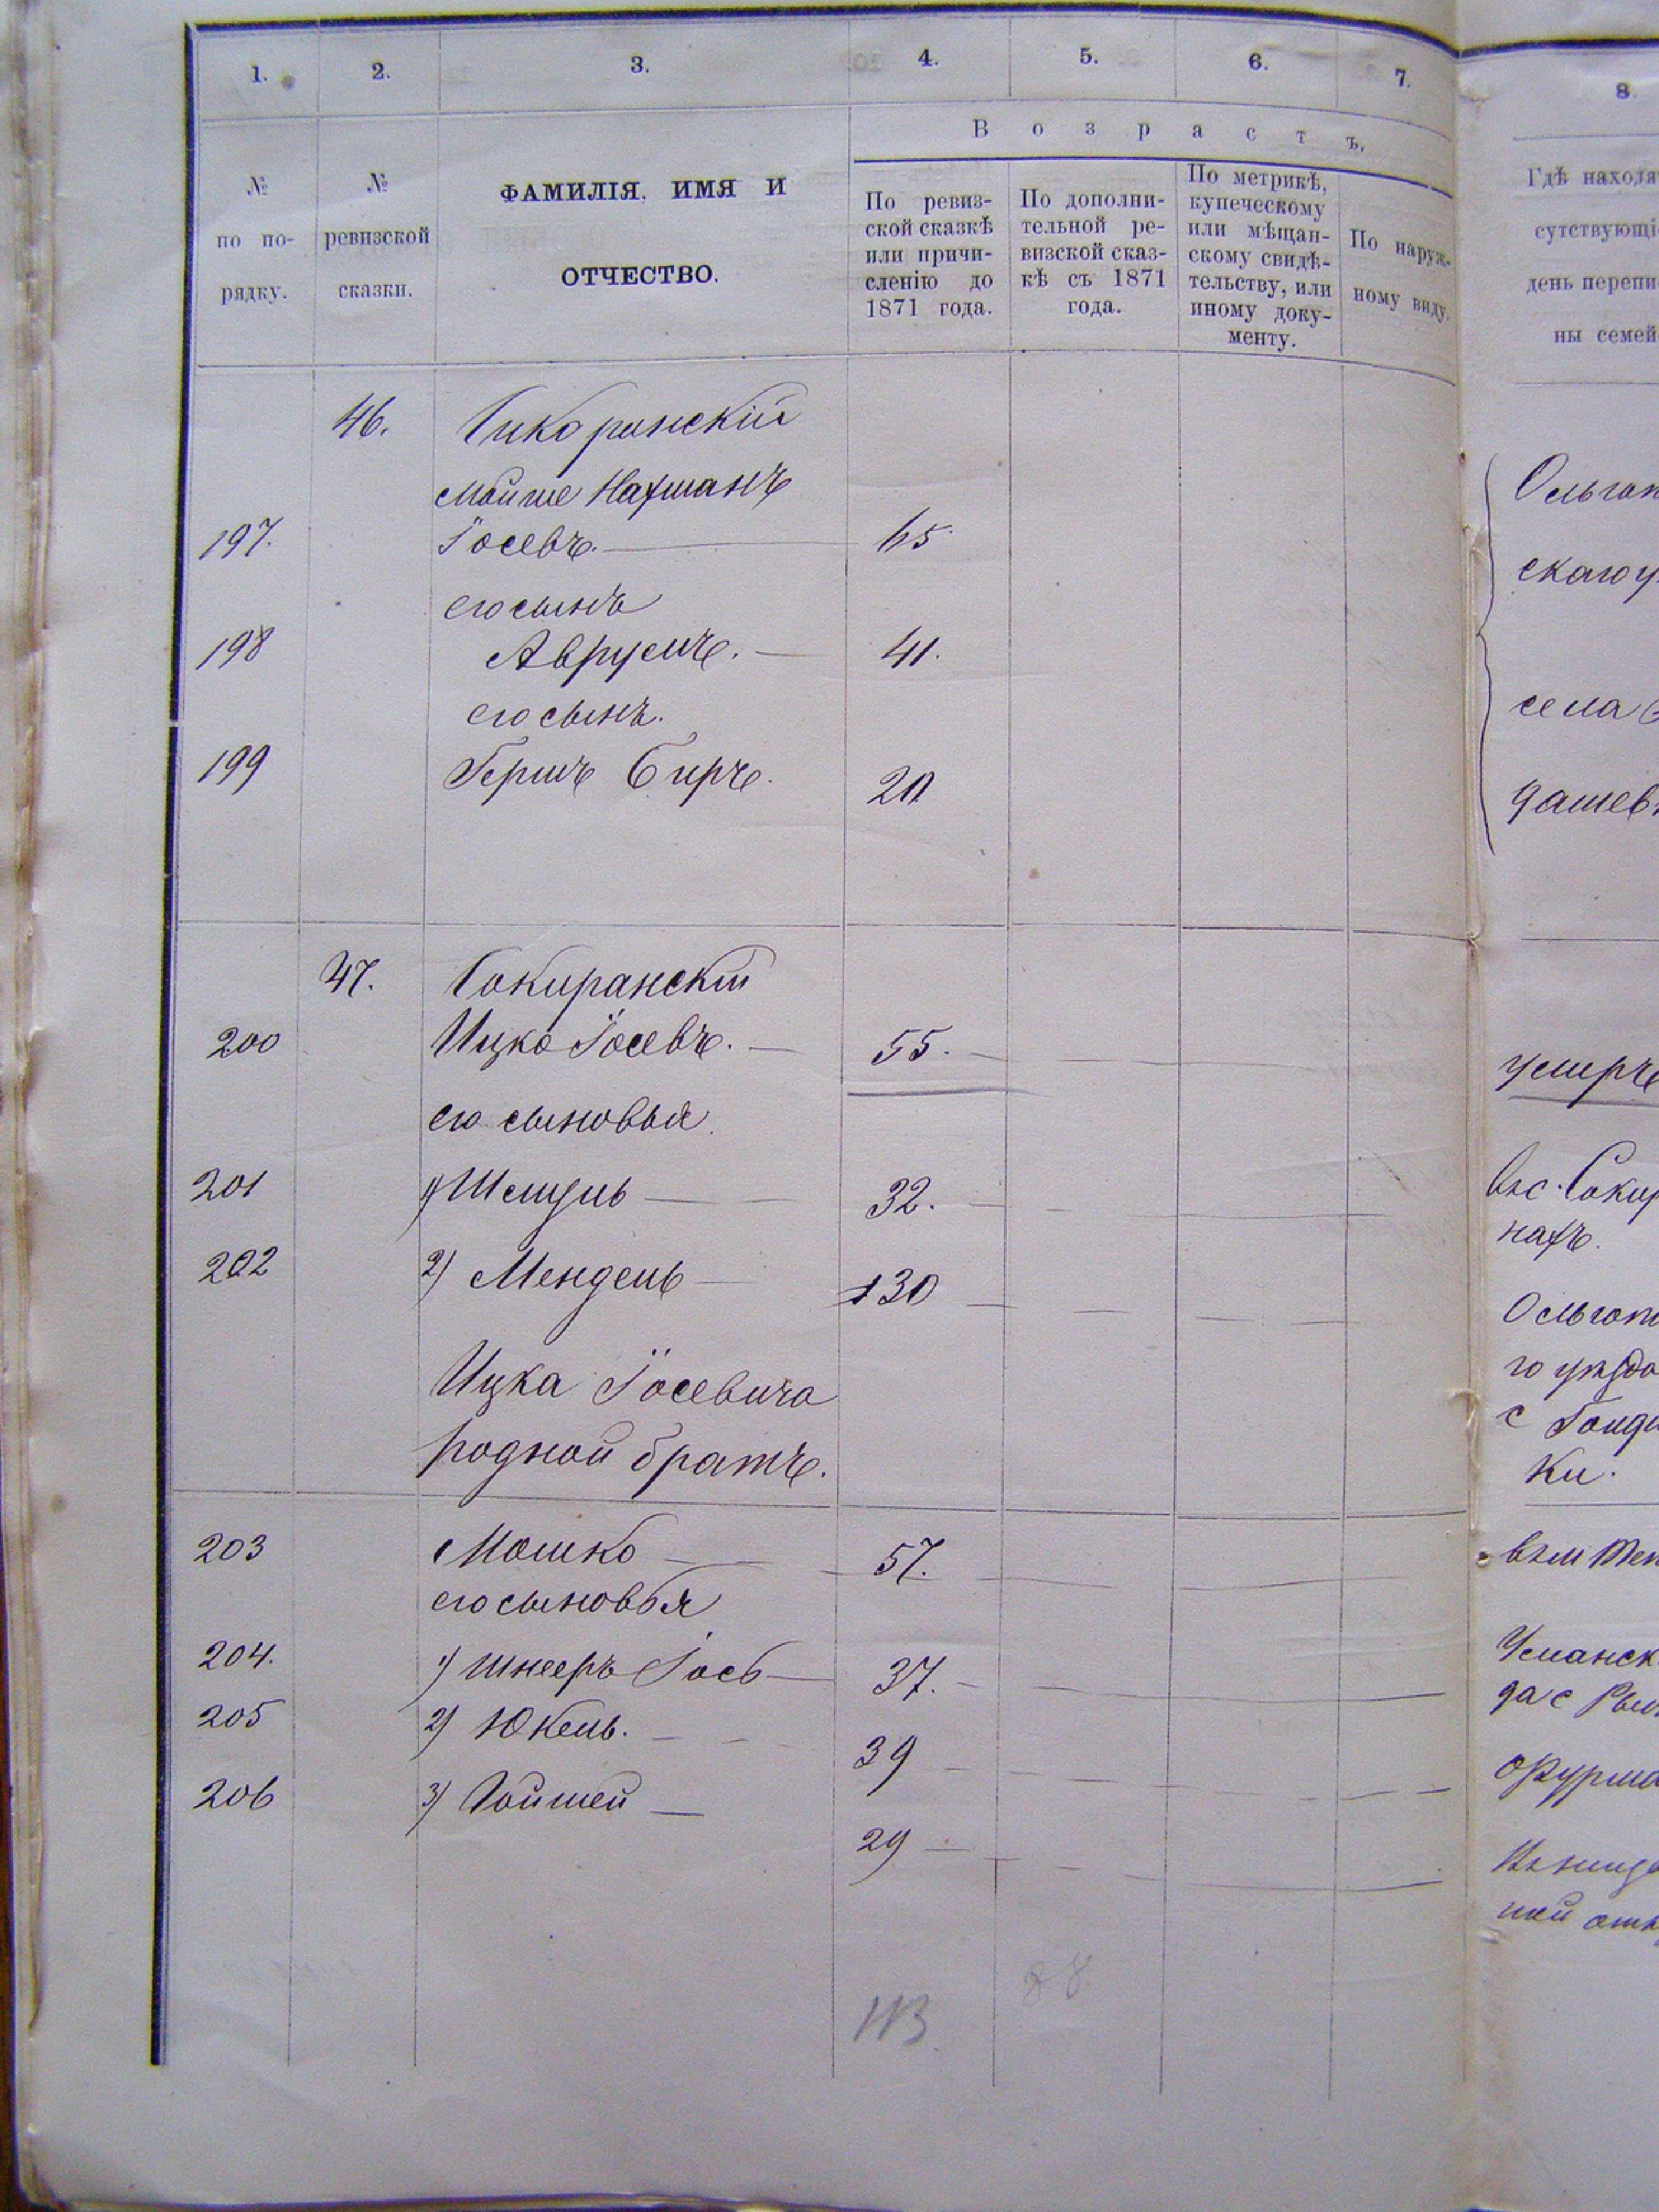 1. 2. 3. 4. 5. 6. 7. 8.
Возрастъ.
№ по порядку.
№ ревизской сказки.
ФАМИЛІЯ, ИМЯ И
ОТЧЕСТВО.
По ревиз-
ской сказкѣ
или причи-
сленію до
1871 года.
По дополни-
тельной ре-
визской сказ-
кѣ съ 1871
года.
По метрикѣ,
купеческому
или мѣщан-
скому свидѣ-
тельству, или
иному доку-
менту.
По наруж-
ному виду.
Гдѣ находя
сутствующі
день перепи
ны семей
46. Сикоринскій
Мойше Нахманъ
197. Іосевъ. 65
его сынъ
198 Аврумъ. 41.
его сынъ.
199 Гершъ Беръ. 20
Ольгоп
скаго у
села
дашев
47. Сокиранскій
200 Ицко Іосевъ. 55.
умеръ
его сыновья
201 1) Шмуль 32.
въ с. Сокир
нахъ.
202 2) Мендель 30
Ольгоп
го уѣзда
с
ки.
Ицка Іосевича
родной братъ.
203 Мошко 57.
его сыновья
204. 1) Шнееръ Іось 37.
Уманск
да с
205 2) Юкель. 39
206 3) Гойшей 29
113
88